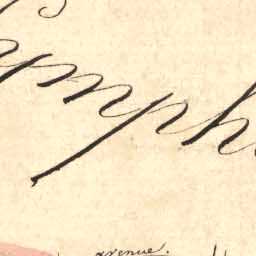 ymph
avenue.